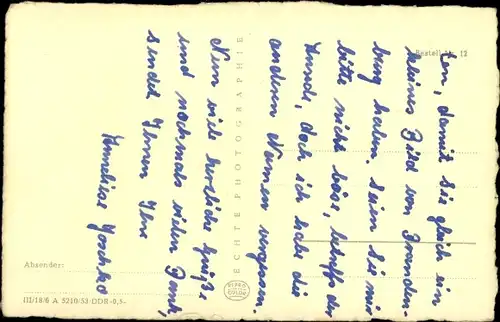 Bestell-Nr. 12
ein, damit Sie gleich ein
kleines Bild von Frieden-
berg haben. Seien Sie mir
bitte nicht böse, betreffs der
Hunde, doch ich habe die
anderen Namen vergessen.
Nun viele herzliche Grüße
und nochmals vielen Dank,
sendet Ihnen Ihre
Anneliese
ECHTE PHOTOGRAPHIE
Absender:
III/18/6 A 5210/53 DDR -0,5-